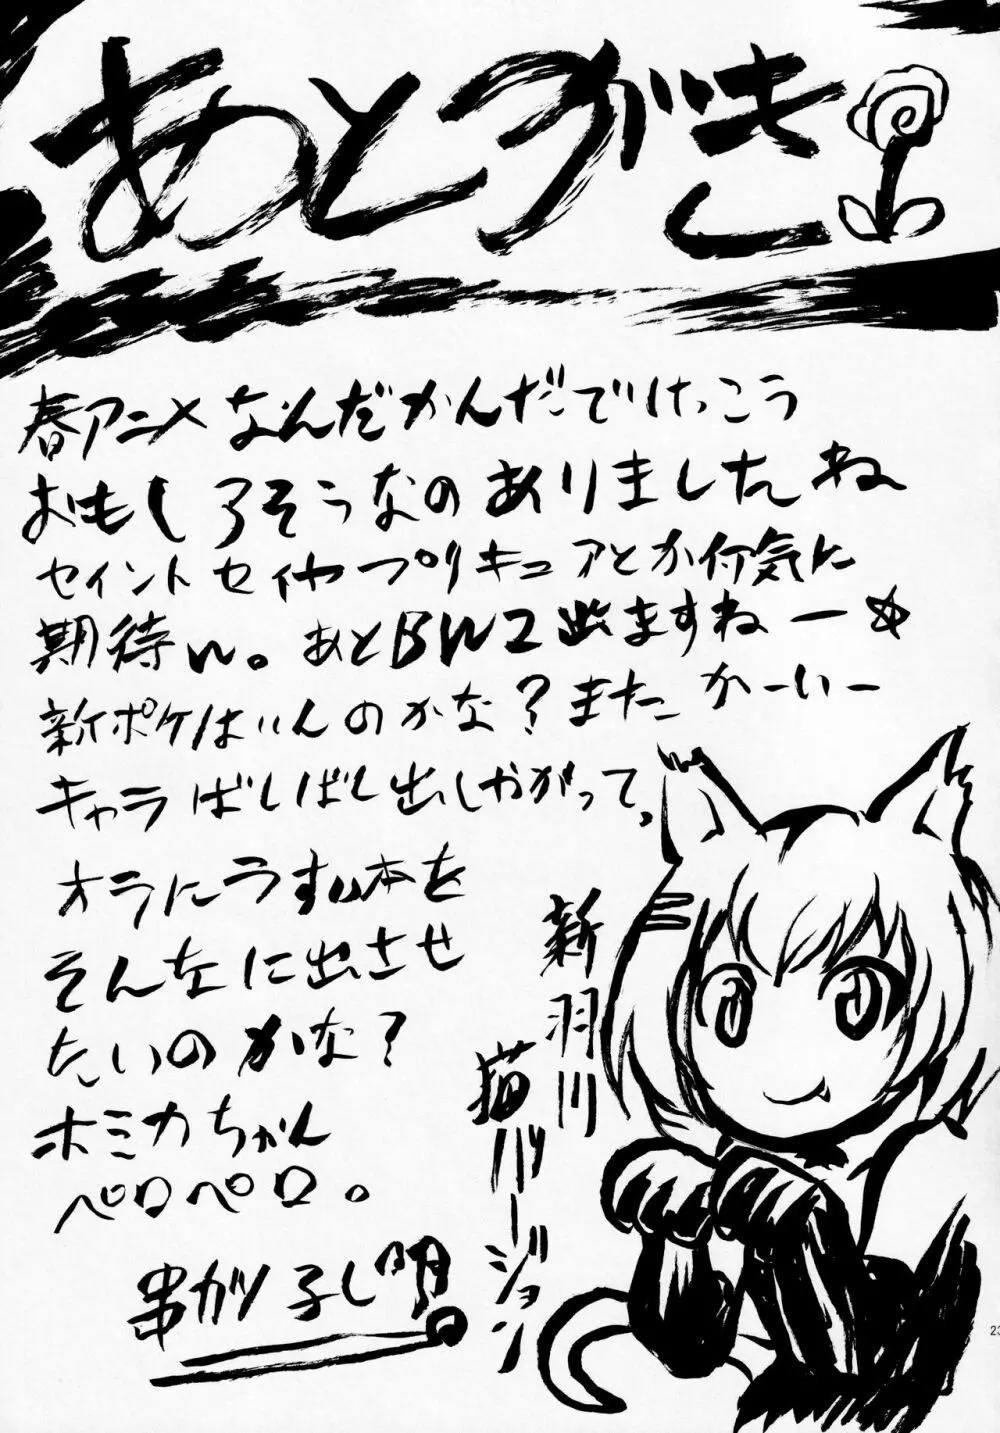 あとがき
春アニメなんだかんだでけっこう
おもしろそうなのありましたね
セイントセイヤプリキュアとか何気に
期待w。あとBW2出ますねー☆
新ポケはいんのかな？またかーいー
キャラばしばし出しやがって、
オラにうすい本を
そんなに出させ
たいのかな？
ホミカちゃん
ペロペロ。
串カツ子し明
新羽川
猫バージョン
23